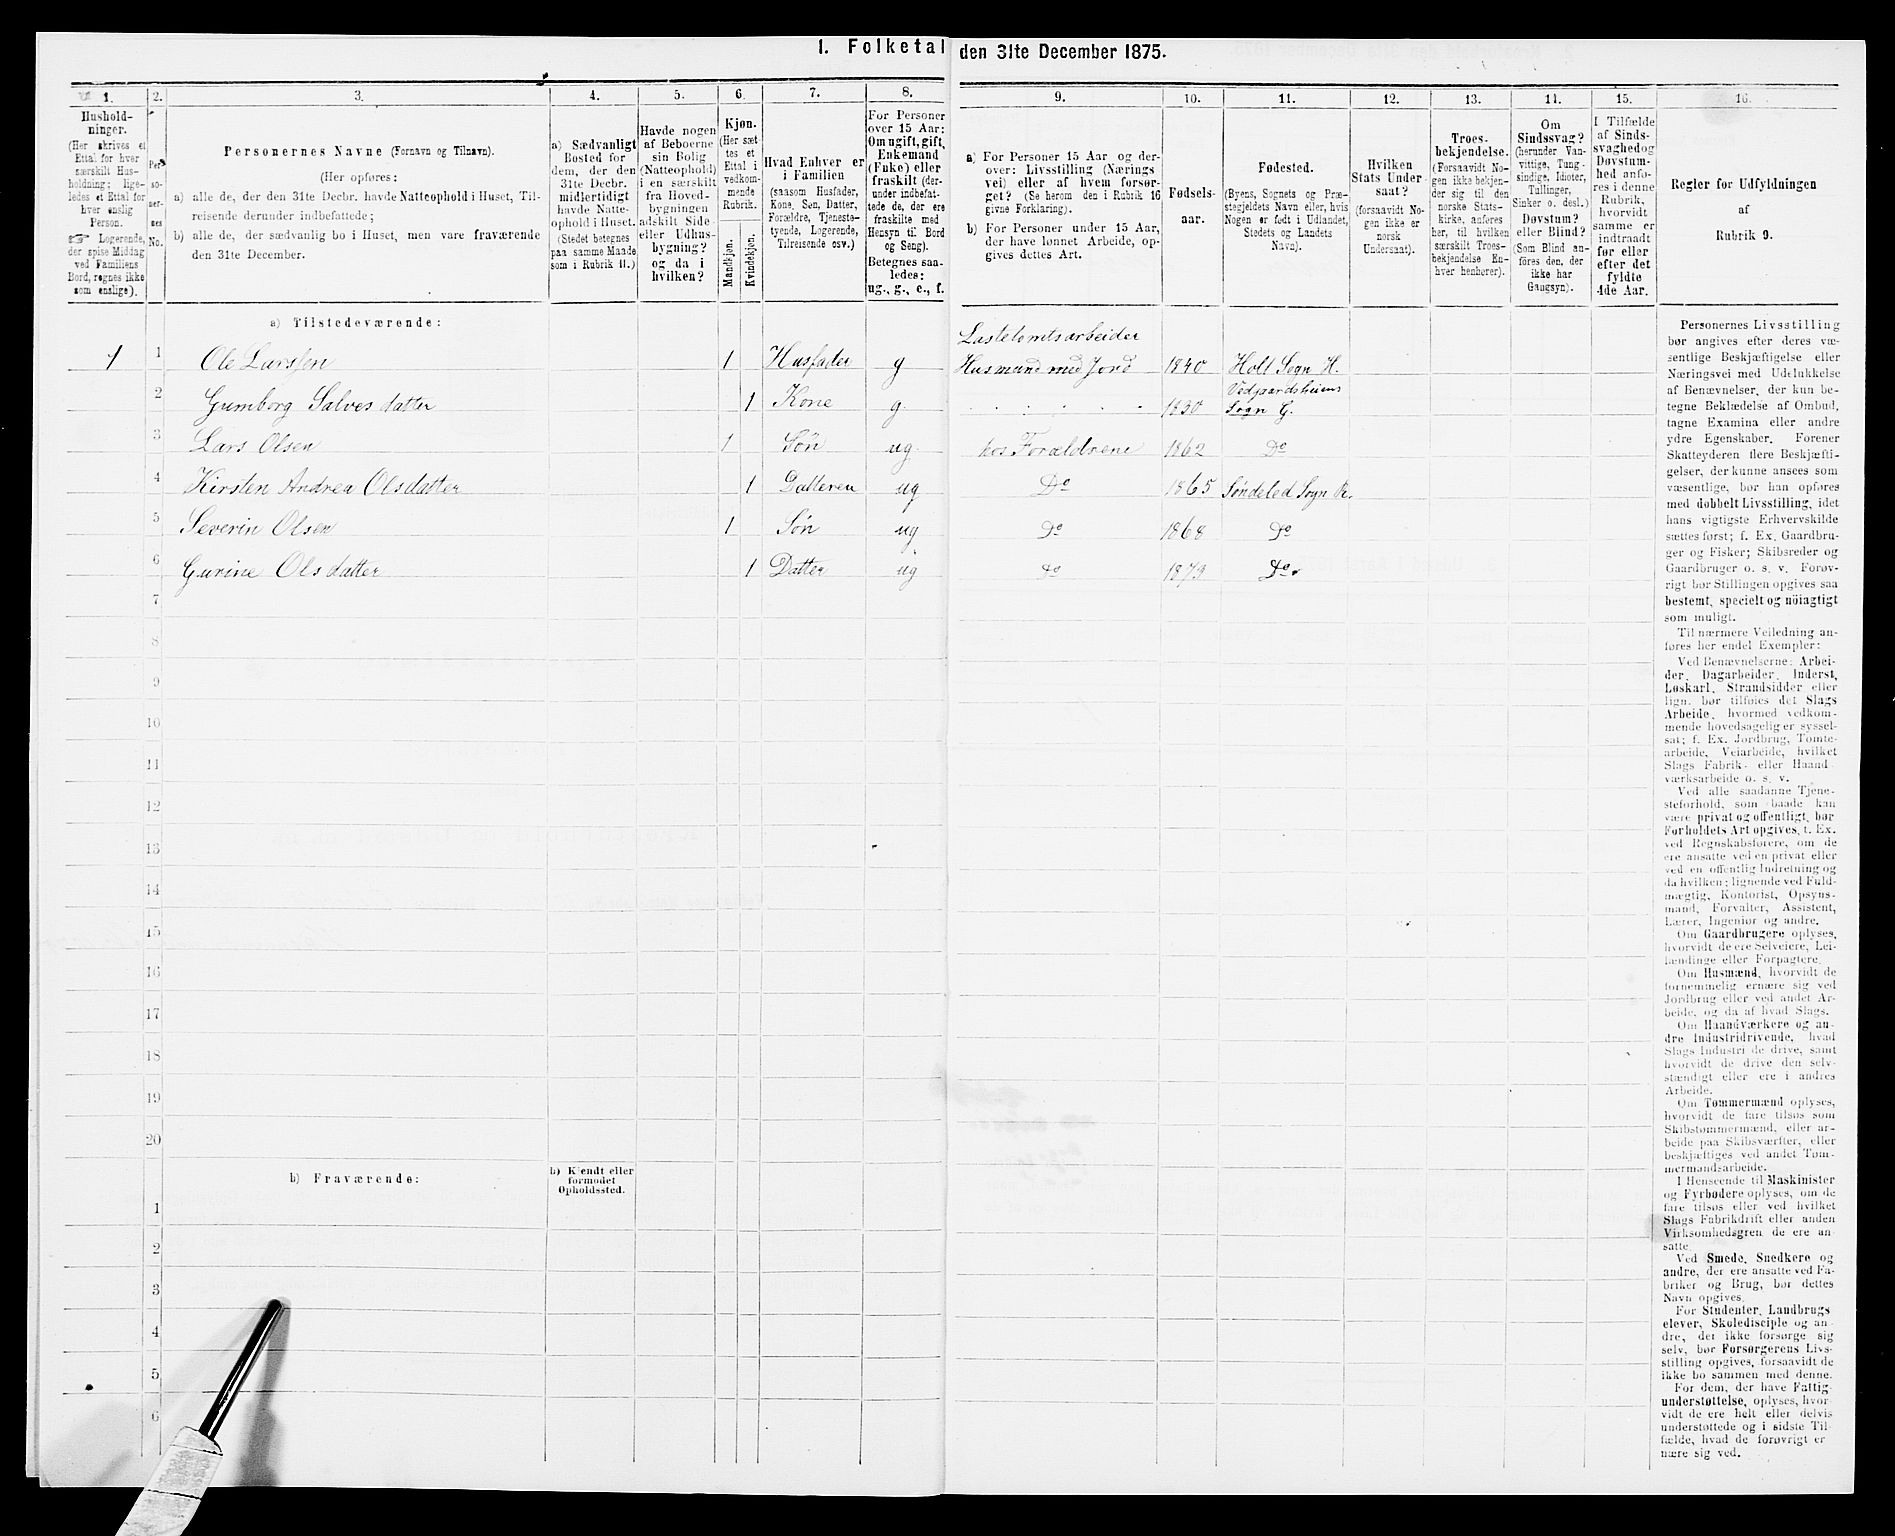 1. Folketal den 31te December 1875.
1. 2. 3. 4. 5. 6. 7. 8. 9. 10. 11. 12. 13. 14. 15. 16.
Hushold-
ninger.
(Her skrives et
Ettal for hver
særskilt Hus-
holdning; lige-
ledes et Ettal for
hver enslig
Person.
☞ Logerende,
der spise Middag
ved Familiens
Bord, regnes ikke
som enslige).
Per-
so-
ner-
nes
No.
Personernes Navne (Fornavn og Tilnavn).
(Her opføres:
a) alle de, der den 31te Decbr. havde Natteophold i Huset, Til-
reisende derunder indbefattede;
b) alle de, der sædvanlig bo i Huset, men vare fraværende
den 31te December.
a) Sædvanligt
Bosted for
dem, der den
31te Decbr.
midlertidigt
havde Natte-
ophold i Huset.
(Stedet betegnes
paa samme Maade
som i Rubrik 11.)
Havde nogen
af Beboerne
sin Bolig
(Natteophold)
i en særskilt
fra Hoved-
bygningen
adskilt Side-
eller Udhus-
bygning?
og da i
hvilken?
Kjøn.
(Her sæt-
tes et
Ettal i
vedkom-
mende
Rubrik.
Mandkjøn.
Kvindekjøn.
Hvad Enhver er
i Familien
(saasom Husfader,
Kone, Søn, Datter,
Forældre, Tjeneste-
tyende, Logerende,
Tilreisende osv.)
For Personer
over 15 Aar:
Om ugift, gift,
Enkemand
(Enke) eller
fraskilt (der-
under indbefat-
tede de, der ere
fraskilte med
Hensyn til Bord
og Seng).
Betegnes saa-
ledes:
ug., g., e., f.
a) For Personer 15 Aar og der-
over: Livsstilling (Nærings-
vei) eller af hvem forsør-
get? (Se herom den i Rubrik 16
givne Forklaring).
b) For Personer under 15 Aar,
der have lønnet Arbeide, op-
gives dettes Art.
Fødsels-
aar.
Fødested.
(Byens, Sognets og Præ-
stegjeldets Navn eller, hvis
Nogen er født i Udlandet,
Stedets og Landets
Navn).
Hvilken
Stats Under-
saat?
(forsaavidt No-
gen ikke er
norsk
Undersaat).
Troes-
bekjendelse.
(Forsaavidt No-
gen ikke bekjen-
der sig til den
norske Stats-
kirke, anføres
her, til hvilken
særskilt Troes-
bekjendelse En-
hver henhører).
Om
Sindssvag?
(herunder Van-
vittige, Tung-
sindige, Idioter,
Tullinger,
Sinker o. desl.)
Døvstum?
eller Blind?
(Som Blind an-
føres den, der
ikke har
Gangsyn).
I Tilfælde
af Sinds-
svaghed og
Døvstum-
hed anfø-
res i denne
Rubrik,
hvorvidt
samme er
indtraadt
før eller
efter det
fyldte
4de Aar.
Regler for Udfyldningen
af
Rubrik 9.
a) Tilstedeværende:
Husmand med Jord
1 1 Ole Larssen 1 Husfader g 1840 Holt Sogn H.
Vedgaardsheiens
2 Gumborg Salvesdatter 1 Kone g. 1830 Sogn G.
3 Lars Olsen 1 Søn ug. hos Forældrene 1862 Do
4 Kirsten Andrea Olsdatter 1 Datteren ug Do 1865 Søndeled Sogn R.
5 Severin Olsen 1 Søn ug Do 1868 Do
6 Gurine Olsdatter 1 Datter ug Do 1873 Do
7
8
9
10
11
12
13
14
15
16
17
18
19
20
b) Fraværende:
b) Kjendt eller
formodet
Opholdssted.
1
2
3
4
5
6
Personernes Livsstilling
bør angives efter deres væ-
sentlige Beskjæftigelse eller
Næringsvei med Udelukkelse
af Benævnelser, der kun be-
tegne Beklædelse af Ombud,
tagne Examina eller andre
ydre Egenskaber. Forener
Skatteyderen flere Beskjæfti-
gelser, der kunne ansees som
væsentlige, bør han opføres
med dobbelt Livsstilling, idet
hans vigtigste Erhvervskilde
sættes først; f. Ex. Gaardbru-
ger og Fisker; Skibsreder og
Gaardbruger o. s. v. Forøv-
rigt bør Stillingen opgives saa
bestemt, specielt og nöiagtigt
som muligt.
Til nærmere Veiledning an-
føres her endel Exempler:
Ved Benævnelserne: Arbei-
der, Dagarbeider, Inderst,
Løskarl, Strandsidder eller
lign. bør tilføies det Slags
Arbeide, hvormed vedkom-
mende hovedsagelig er syssel-
sat; f. Ex. Jordbrug, Tomte-
arbeide, Veiarbeide, hvilket
Slags Fabrik- eller Haand-
værksarbeide o. s. v.
Ved alle saadanne Tjene-
steforhold, som baade kan
være privat og offentligt, bør
Forholdets Art opgives, t. Ex.
ved Regnskabsførere, om de
ere ansatte ved en privat eller
ved en offentlig Indretning og
da hvilken; lignende ved Fuld-
mægtig, Kontorist, Opsyns-
mand, Forvalter, Assistent,
Lærer, Ingeniør og andre.
Om Gaardbrugere oplyses,
hvorvidt de ere Selveiere, Lei-
lændinge eller Forpagtere.
Om Husmænd, hvorvidt de
fornemmelig ernære sig ved
Jordbrug eller ved andet Ar-
beide, og da af hvad Slags.
Om Haandværkere og an-
dre Industridrivende, hvad
Slags Industri de drive, samt
hvorvidt de drive den selv-
stændigt eller ere i andres
Arbeide.
Om Tømmermænd oplyses,
hvorvidt de fare tilsøs som
Skibstømmermænd, eller ar-
beide paa Skibsværfter, eller
beskjæftiges ved andet Tøm-
mermandsarbeide.
I Henseende til Maskinister
og Fyrbødere oplyses, om de
fare tilsøs eller ved hvilket
Slags Fabrikdrift eller anden
Virksomhedsgren de ere an-
satte.
Ved Smede, Snedkere og
andre, der ere ansatte ved Fa-
briker og Brug, bør dettes
Navn opgives.
For Studenter, Landbrugs-
elever, Skoledisciple og an-
dre, der ikke forsørge sig
selv, bør Forsørgerens Livs-
stilling opgives, forsaavidt de
ikke bo sammen med denne.
For dem, der have Fattig-
understøttelse, oplyses, hvor-
vidt de ere helt eller delvis
understøttede og i sidste Til-
fælde, hvad de forøvrigt er-
nære sig ved.